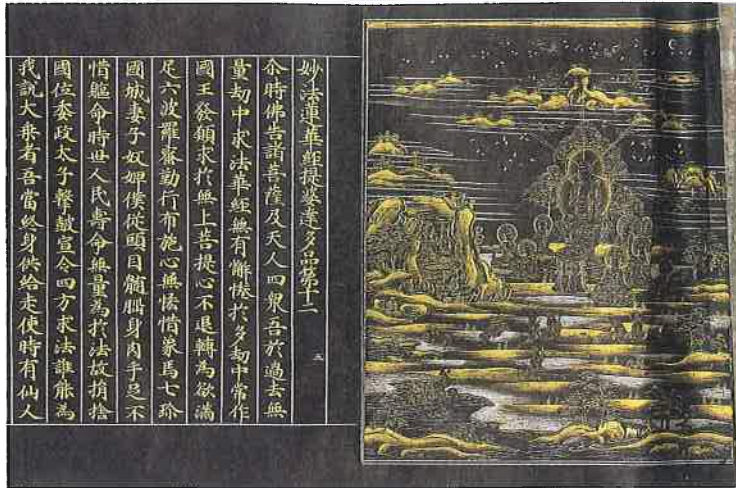 妙法蓮華經提婆達多品第十二
尒時佛告諸菩薩及天人四衆吾扵過去無
量劫中求法華經無有懈惓扵多劫中常作
國王發願求扵無上菩提心不退轉為欲滿
足六波羅蜜勤行布施心無悋惜象馬七珎
國城妻子奴婢僕從頭目髓腦身肉手足不
惜軀命時世人民壽命無量為扵法故捐捨
國位委政太子擊皷宣令四方求法誰能為
我說大乗者吾當終身供給走使時有仙人